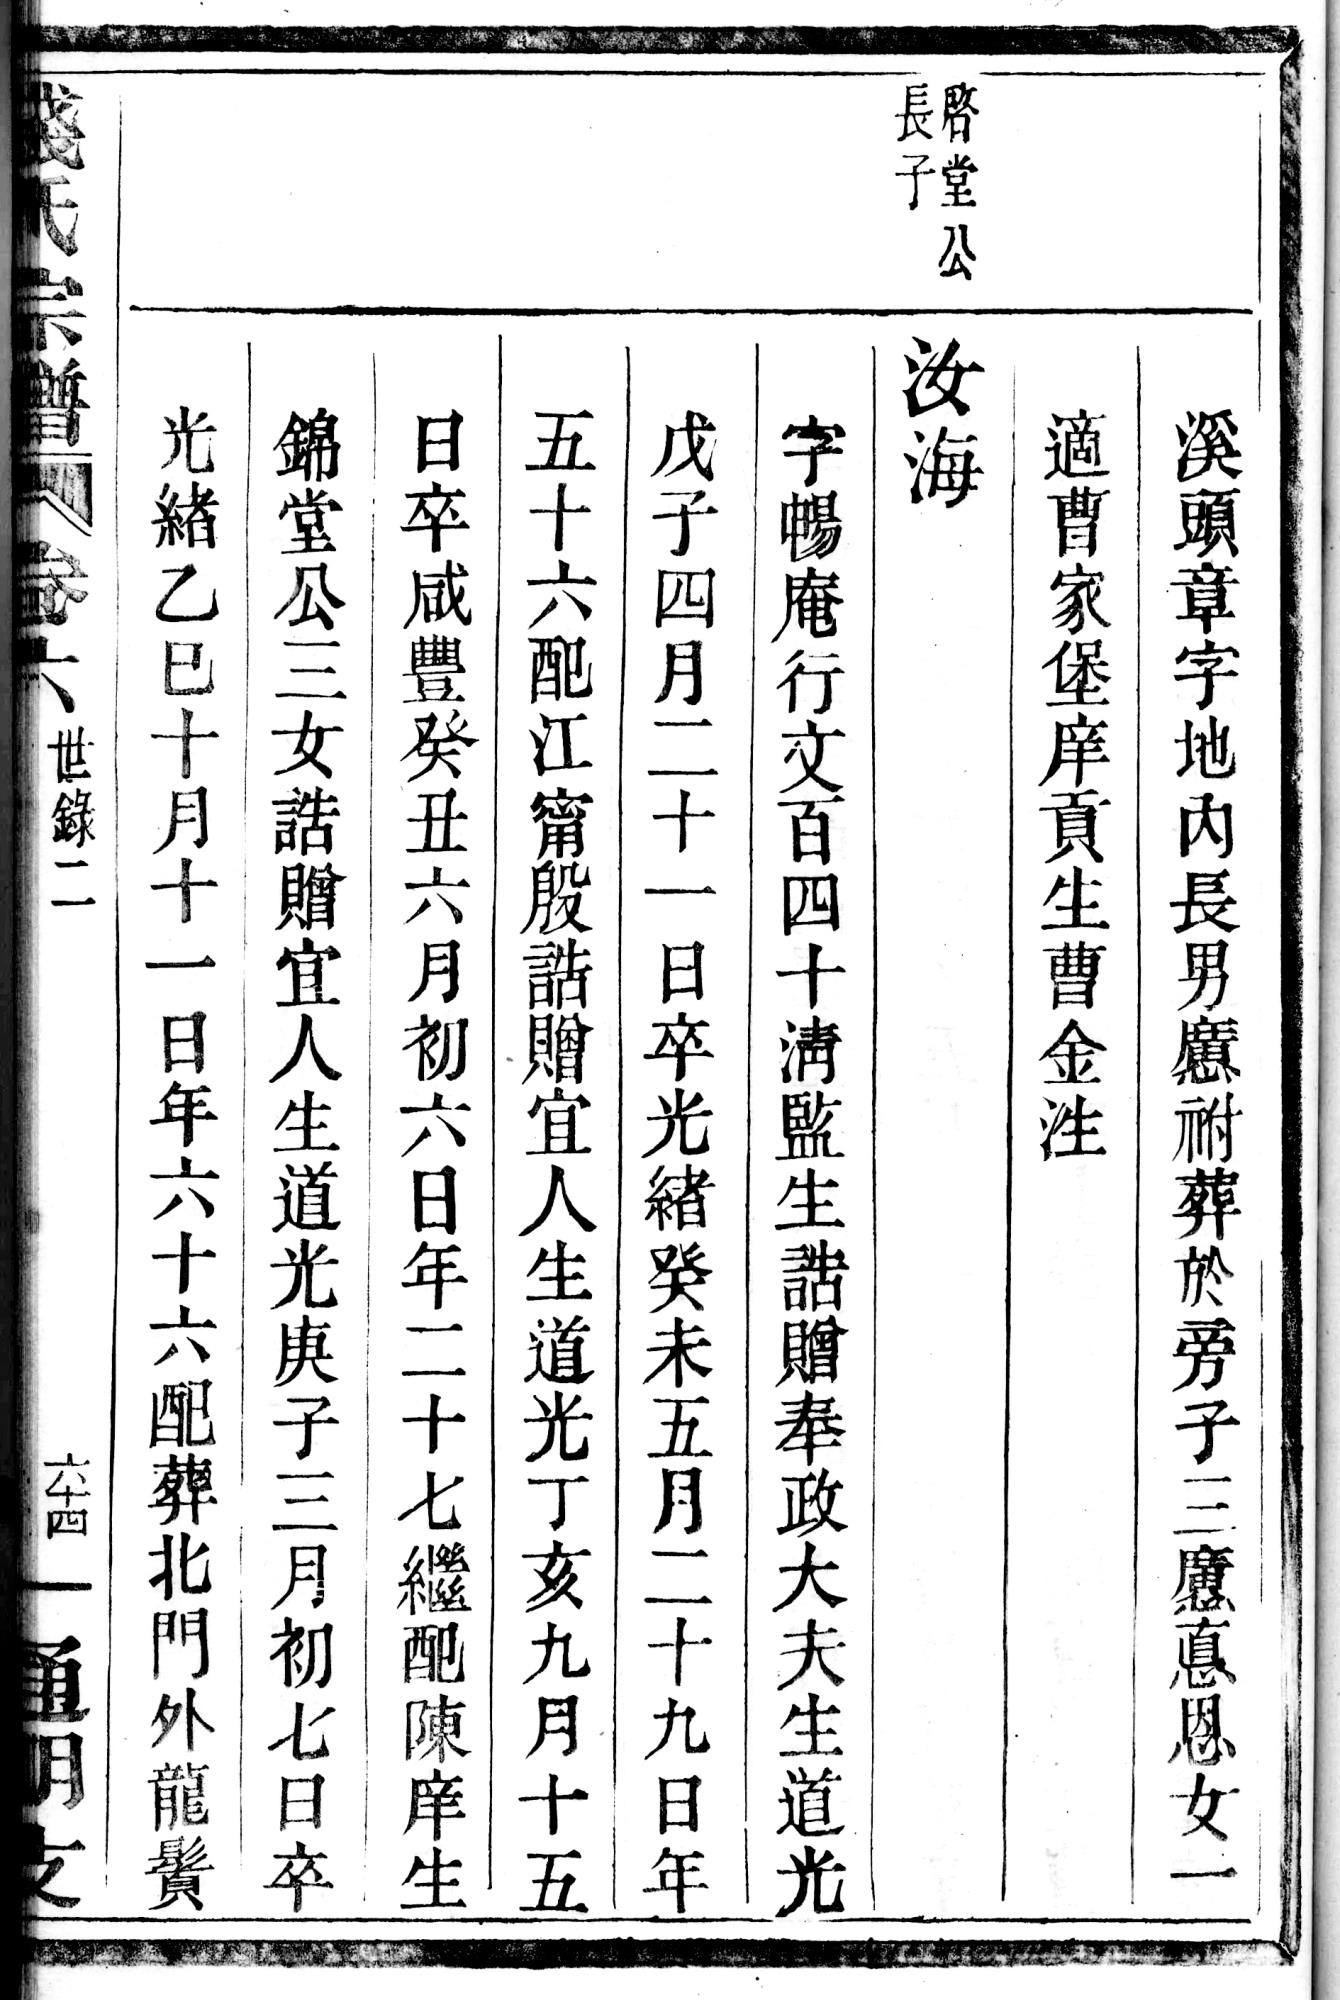 溪頭章字地內長男應祔葬於旁子三應悳恩女一
適曹家堡庠貢生曹金泩
啓堂公
長子
汝海
字暢庵行文百四十淸監生誥贈奉政大夫生道光
戊子四月二十一日卒光緒癸未五月二十九日年
五十六配江甯殷誥贈宜人生道光丁亥九月十五
日卒咸豐癸丑六月初六日年二十七繼配陳庠生
錦堂公三女誥贈宜人生道光庚子三月初七日卒
光緒乙巳十月十一日年六十六配葬北門外龍鬢
錢氏宗譜 卷六 世錄二 六十四 通明支